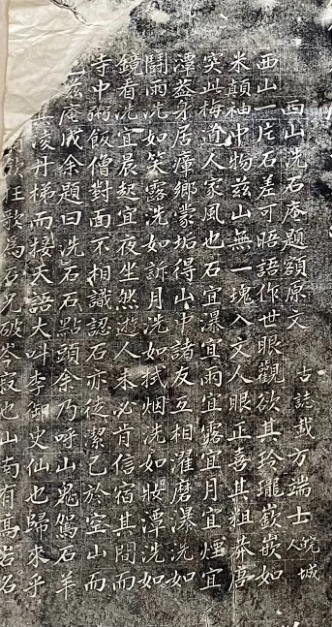 西山洗石庵题额原文 古誌載方端士皖城人
西山一片石差可晤語作世眼觀欲其玲瓏嵌嵌如
米顛袖中物茲山無一塊入文人眼正喜其粗莽蒼
突此梅道人家風也石宜瀑宜雨宜露宜月宜煙宜
潭益身居瘴鄉蒙垢得山中諸友互相濯磨瀑洗如
鬭雨洗如笑露洗如訴月洗如拭烟洗如妝潭洗如
鏡看洗宜晨起宜夜坐然游人未必肯信宿其間而
寺中粥飯僧對面不相識認石亦徒潔已於空山而
庵成余題曰洗石石點頭余乃呼山鬼駕石羊
凌丹梯而接天語大叫李御史仙也歸來乎
狂歌為石兄破岑寂也山南有高岩名